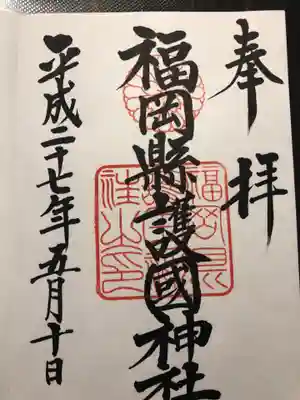 奉拝
福岡縣護國神社
平成二十七年五月十日